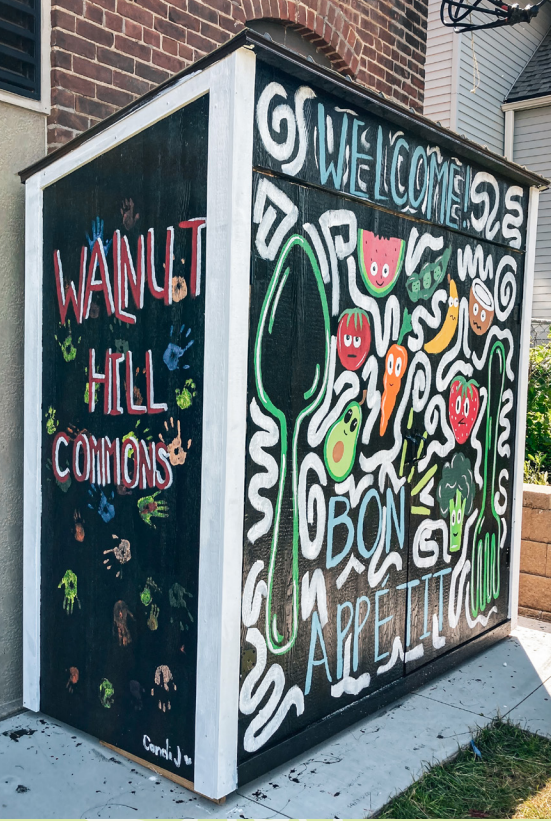 WALNUT
HILL
COMMONS
Candi J
WELCOME!
BON
APPÉTIT